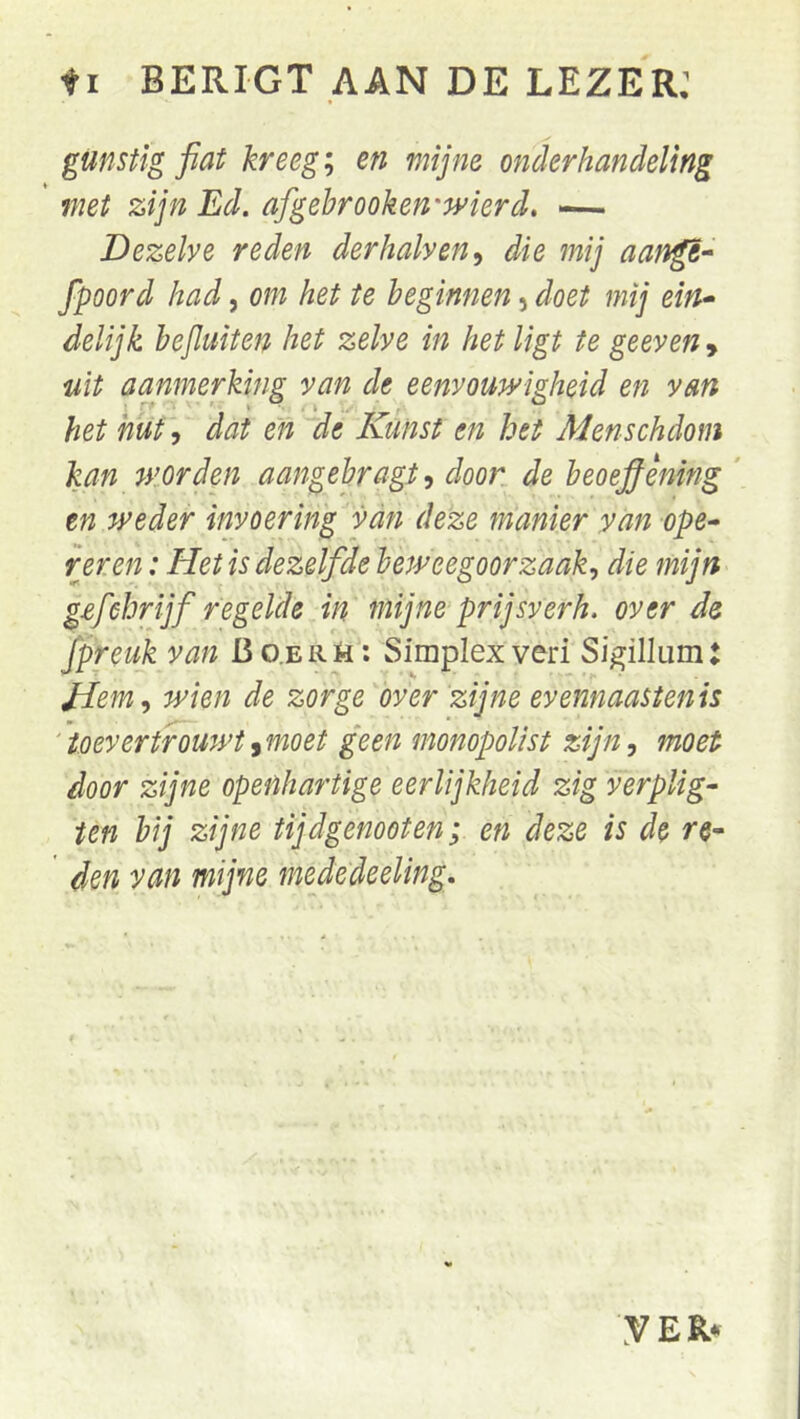 †I BERIGT AAN DE LEZER.
gunstig fiat kreeg; en mijne onderhandeling
met zijn Ed. afgebrooken wierd. —
Dezelve reden derhalven, die mij aange-
ſpoord had, om het te beginnen, doet mij ein-
delijk beſluiten het zelve in het ligt te geeven,
uit aanmerking van de eenvouwigheid en van
het nut, dat en de Kunst en het Menschdom
kan worden aangebragt, door de beoeffening
en weder invoering van deze manier van ope-
reren: Het is dezelfde beweegoorzaak, die mijn
geſchrijf regelde in mijne prijsverh. over de
ſpreuk van BOERH: Simplex veri Sigillum:
Hem, wien de zorge over zijne evennaasten is
toevertrouwt, moet geen monopolist zijn, moet
door zijne openhartige eerlijkheid zig verplig-
ten bij zijne tijdgenooten; en deze is de re-
den van mijne mededeeling.
VER-